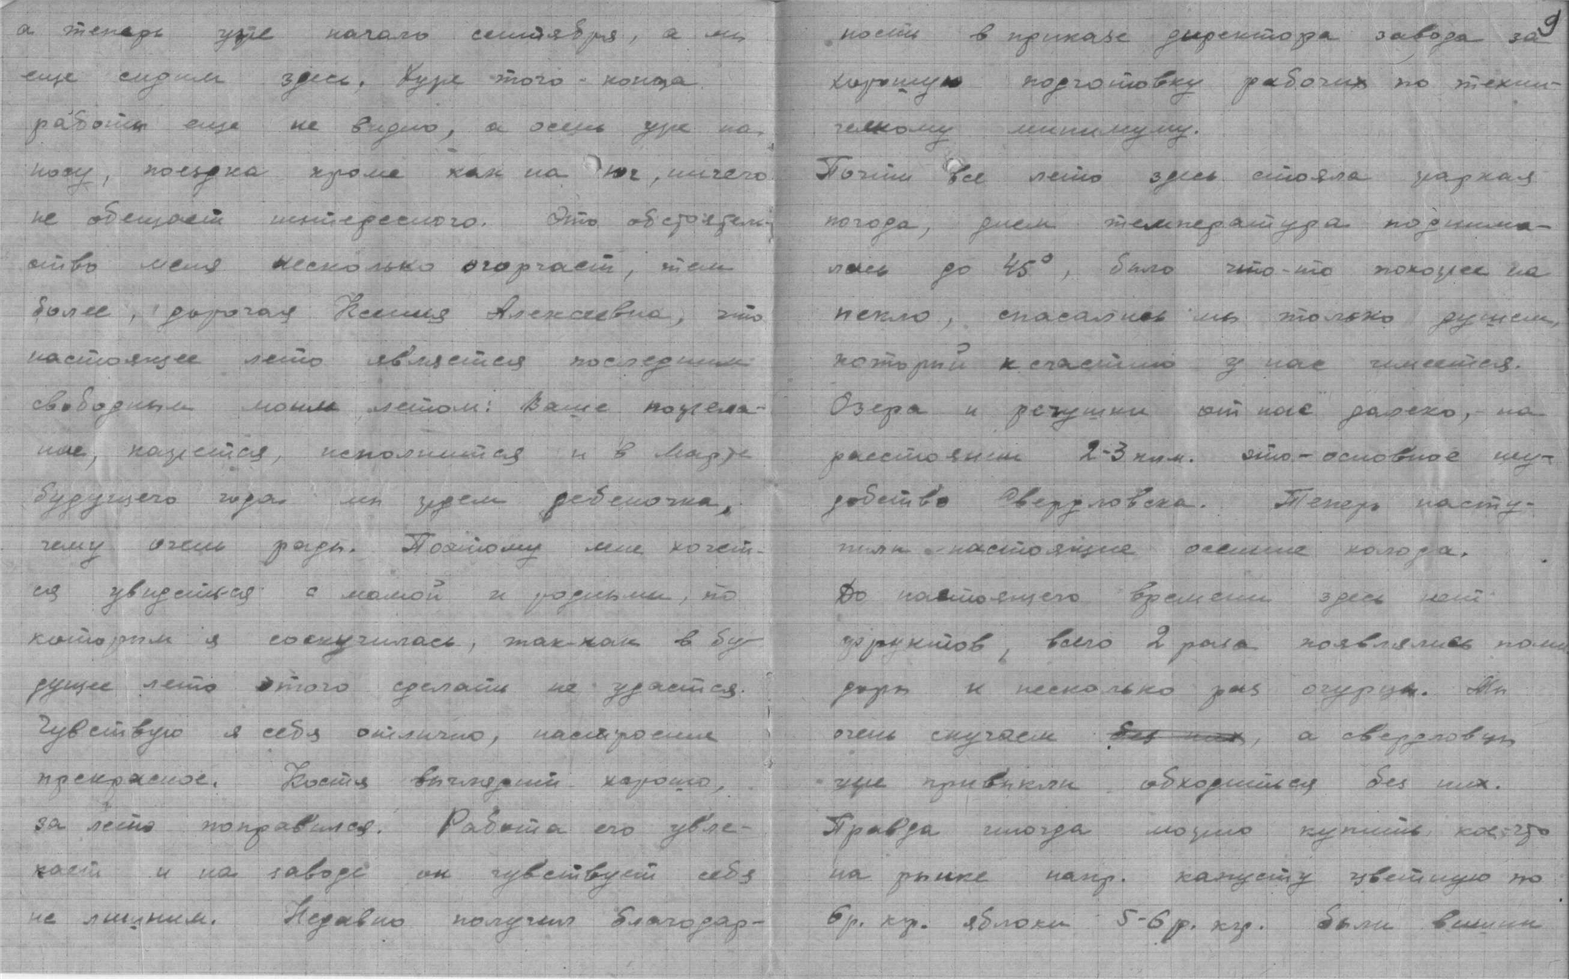 а теперь уже начало сентября, а мы
еще сидим здесь. Хуже того - конца
работы еще не видно, а осень уже на
носу, поездка кроме как на юг, ничего
не обещает интересного. Это обстоятель-
ство меня несколько огорчает, тем
более, дорогая Ксения Алексеевна, что
настоящее лето является последним
свободным моим летом: Ваше пожела-
ние, кажется, исполнится и в марте
будущего года мы ждем ребеночка,
чему очень рады. Поэтому мне хочет-
ся увидеться с мамой и родными, по
которым я соскучилась, так-как в бу-
дущее лето этого сделать не удастся.
Чувствую я себя отлично, настроение
прекрасное. Костя выглядит хорошо,
за лето поправился. Работа его увле-
кает и на заводе он чувствует себя
не лишним. Недавно получил благодар-
9
ность в приказе директора завода за
хорошую подготовку рабочих по техни-
ческому минимуму.
Почти все лето здесь стояла жаркая
погода, днем температура поднима-
лась до 45°, было что-то похожее на
пекло, спасались мы только душем,
который к счастию у нас имеется.
Озера и речушки от нас далеко, - на
расстоянии 2-3 клм. это - основное неу-
добство Свердловска. Теперь насту-
пили настоящие осенние холода.
До настоящего времени здесь нет
фруктов, всего 2 раза появлялись поми
доры и несколько раз огурцы. Мы
очень скучаем без них, а свердловцы
уже привыкли обходиться без них.
Правда иногда можно купить кое-что
на рынке напр. капусту цветную по
6 р. кг. яблоки 5-6 р. кг. были вишни